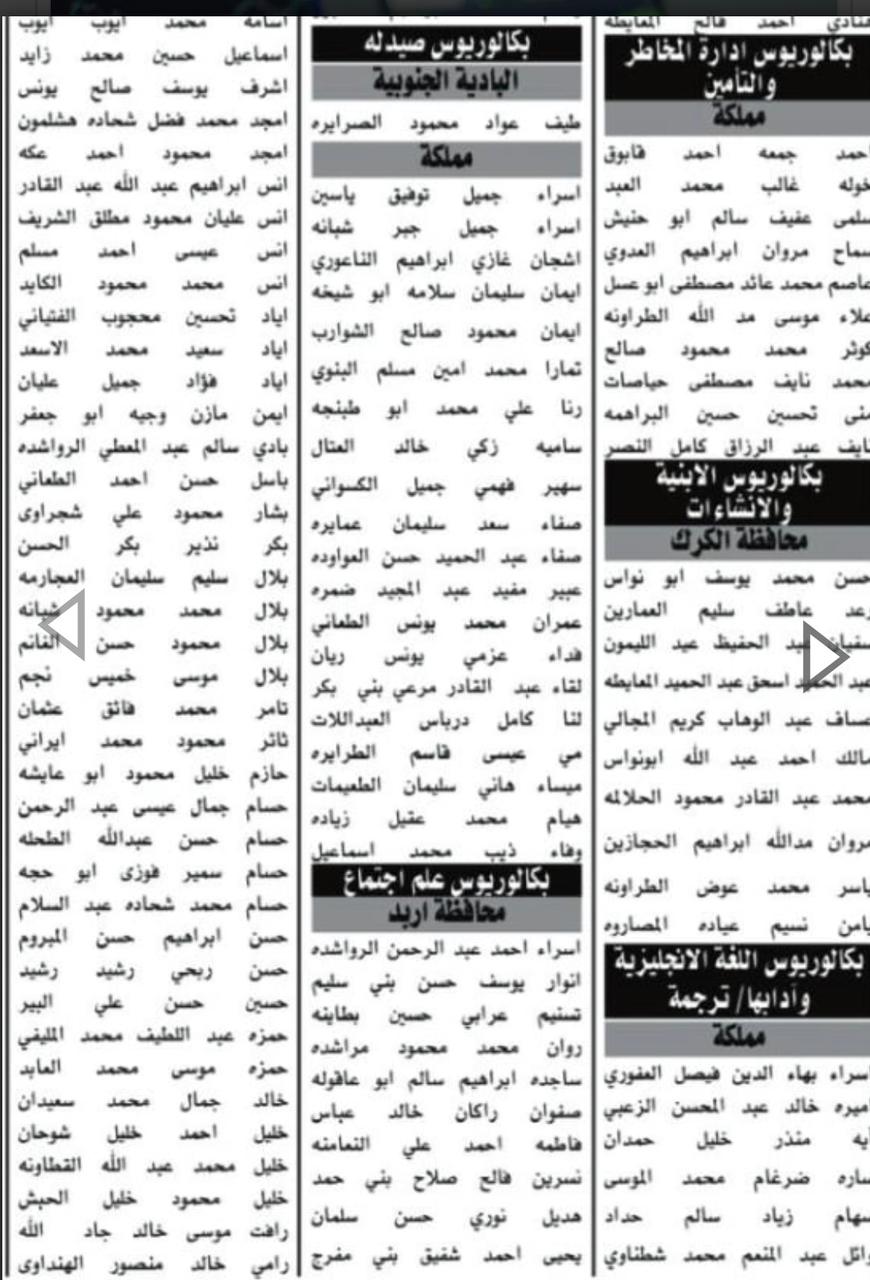 هنادي احمد فالح المعايطه
بكالوريوس ادارة المخاطر
والتأمين
مملكة
احمد جمعه احمد قابوق
خوله غالب محمد العبد
سلمى عفيف سالم ابو حنيش
سماح مروان ابراهيم العدوي
عاصم محمد عائد مصطفى ابو عسل
علاء موسى مد الله الطراونه
كوثر محمد محمود صالح
محمد نايف مصطفى حياصات
منى تحسين حسين البراهمه
نايف عبد الرزاق كامل النصر
بكالوريوس الابنية
والانشاءات
محافظة الكرك
حسن محمد يوسف ابو نواس
رعد عاطف سليم العمارين
سفيان عبد الحفيظ عبد الليمون
عبد الحميد اسحق عبد الحميد المعايطه
عساف عبد الوهاب كريم المجالي
مالك احمد عبد الله ابونواس
محمد عبد القادر محمود الحلالمه
مروان مدالله ابراهيم الحجازين
ياسر محمد عوض الطراونه
يامن نسيم عياده المصاروه
بكالوريوس اللغة الانجليزية
وآدابها/ ترجمة
مملكة
اسراء بهاء الدين فيصل العفوري
اميره خالد عبد المحسن الزعبي
آيه منذر خليل حمدان
ساره ضرغام محمد الموسى
سهام زياد سالم حداد
وائل عبد المنعم محمد شطناوي
بكالوريوس صيدله
البادية الجنوبية
طيف عواد محمود الصرايره
مملكة
اسراء جميل توفيق ياسين
اسراء جميل جبر شبانه
اشجان غازي ابراهيم الناعوري
ايمان سليمان سلامه ابو شيخه
ايمان محمود صالح الشوارب
تمارا محمد امين مسلم البنوي
رنا علي محمد ابو طبنجه
ساميه زكي خالد العتال
سهير فهمي جميل الكسواني
صفاء سعد سليمان عمايره
صفاء عبد الحميد حسن العواوده
عبير مفيد عبد المجيد ضمره
عمران محمد يونس الطعاني
فداء عزمي يونس ريان
لقاء عبد القادر مرعي بني بكر
لنا كامل درباس العبداللات
مي عيسى قاسم الطرايره
ميساء هاني سليمان الطعيمات
هيام محمد عقيل زياده
وفاء ذيب محمد اسماعيل
بكالوريوس علم اجتماع
محافظة اربد
اسراء احمد عبد الرحمن الرواشده
انوار يوسف حسن بني سليم
تسنيم عرابي حسين بطاينه
روان محمد محمود مراشده
ساجده ابراهيم سالم ابو عاقوله
صفوان راكان خالد عباس
فاطمه احمد علي النعامنه
نسرين فالح صلاح بني حمد
هديل نوري حسن سلمان
يحيى احمد شفيق بني مفرج
اسامه محمد ايوب ايوب
اسماعيل حسين محمد زايد
اشرف يوسف صالح يونس
امجد محمد فضل شحاده هشلمون
امجد محمود احمد عكه
انس ابراهيم عبد الله عبد القادر
انس عليان محمود مطلق الشريف
انس عيسى احمد مسلم
انس محمد محمود الكايد
اياد تحسين محجوب الفتياني
اياد سعيد محمد الاسعد
اياد فؤاد جميل عليان
ايمن مازن وجيه ابو جعفر
بادي سالم عبد المعطي الرواشده
باسل حسن احمد الطعاني
بشار محمود علي شجراوى
بكر نذير بكر الحسن
بلال سليم سليمان العجارمه
بلال محمد محمود شبانه
بلال محمود حسن الغانم
بلال موسى خميس نجم
تامر محمد فائق عثمان
ثائر محمود محمد ايراني
حازم خليل محمود ابو عايشه
حسام جمال عيسى عبد الرحمن
حسام حسن عبدالله الطحله
حسام سمير فوزى ابو حجه
حسام محمد شحاده عبد السلام
حسن ابراهيم حسن المبروم
حسن ربحي رشيد رشيد
حسين حسن علي البير
حمزه عبد اللطيف محمد المليفي
حمزه موسى محمد العابد
خالد جمال محمد سعيدان
خليل احمد خليل شوحان
خليل محمد عبد الله القطاونه
خليل محمود خليل الحبش
رافت موسى خالد جاد الله
رامي خالد منصور الهنداوى